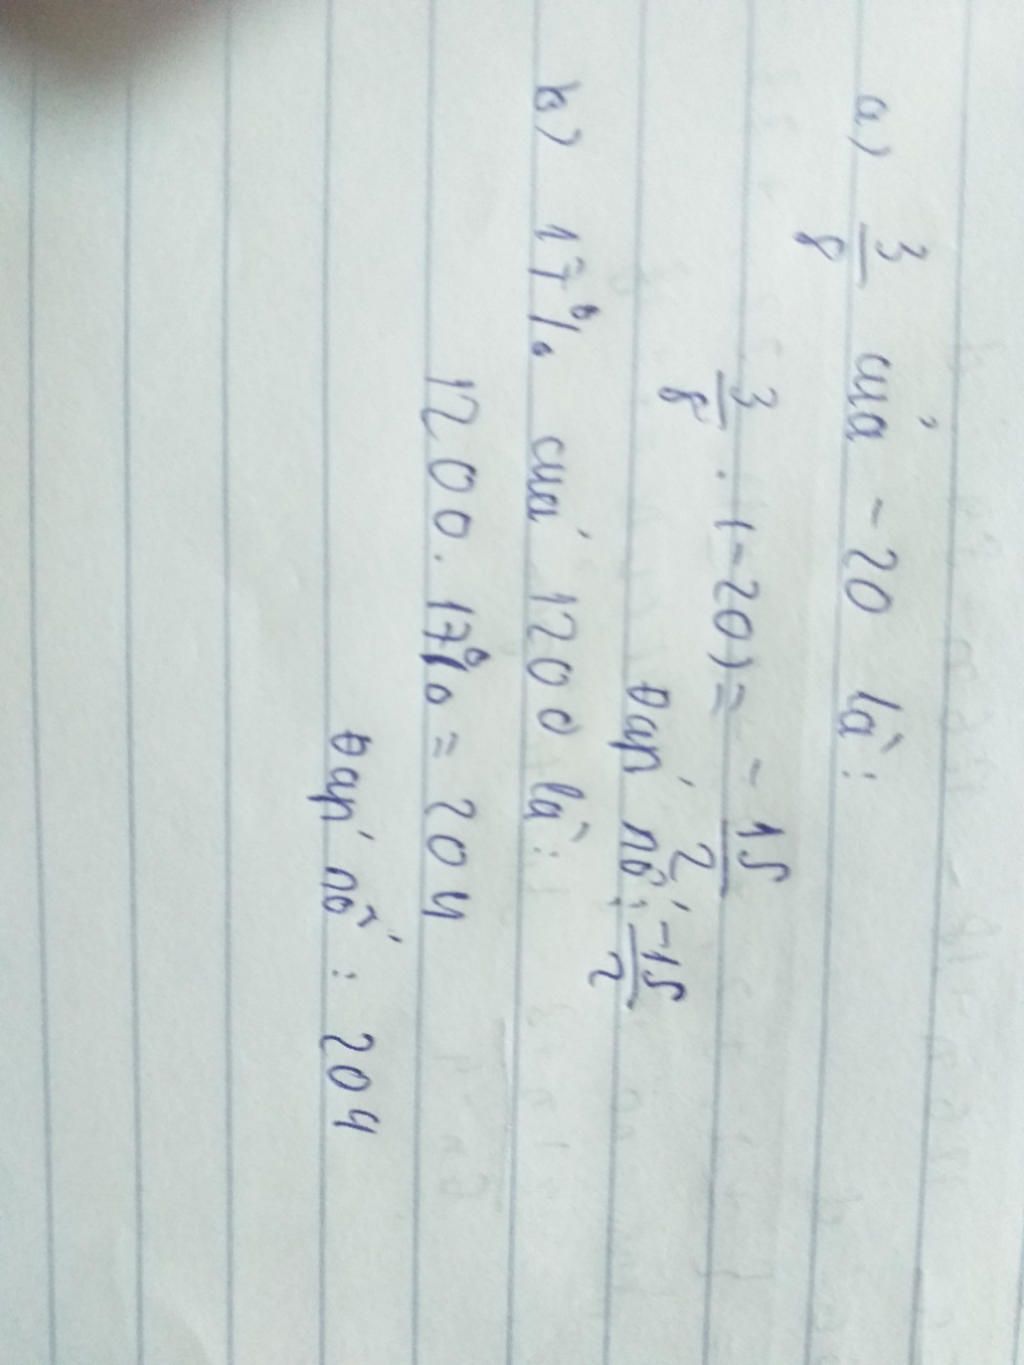 a) 3/8 của -20 là:
3/8 . (-20) = -15/2
Đáp số: -15/2
b) 17% của 1200 là:
1200. 17% = 204
Đáp số: 204